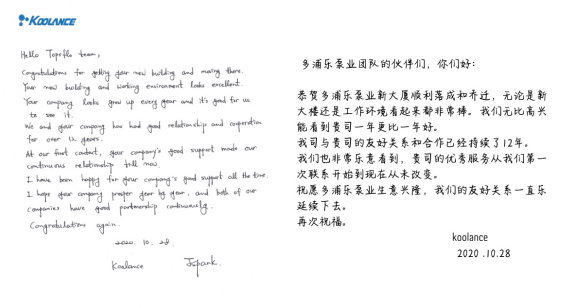 KOOLANCE
Hello Topsflo team,
Congratulations for getting your new building and moving there.
Your new building and working environment looks excellent.
Your company looks grow up every year and it's good for us
to see it.
We and your company has had good relationship and cooperation
for over 12 years.
At our first contact, your company's good support made our
continuous relationship till now.
I have been happy for your company's good support all the time.
I hope your company prosper year by year, and both of our
companies have good partnership continuously.
Congratulations again.
2020. 10. 28.
Koolance Jspark.
多浦乐泵业团队的伙伴们，你们好：
恭贺多浦乐泵业新大厦顺利落成和乔迁，无论是新
大楼还是工作环境看起来都非常棒。我们无比高兴
能看到贵司一年更比一年好。
我司与贵司的友好关系和合作已经持续了12年。
我们也非常乐意看到，贵司的优秀服务从我们第一
次联系开始到现在从未改变。
祝愿多浦乐泵业生意兴隆，我们的友好关系一直乐
延续下去。
再次祝福。
koolance
2020 .10.28